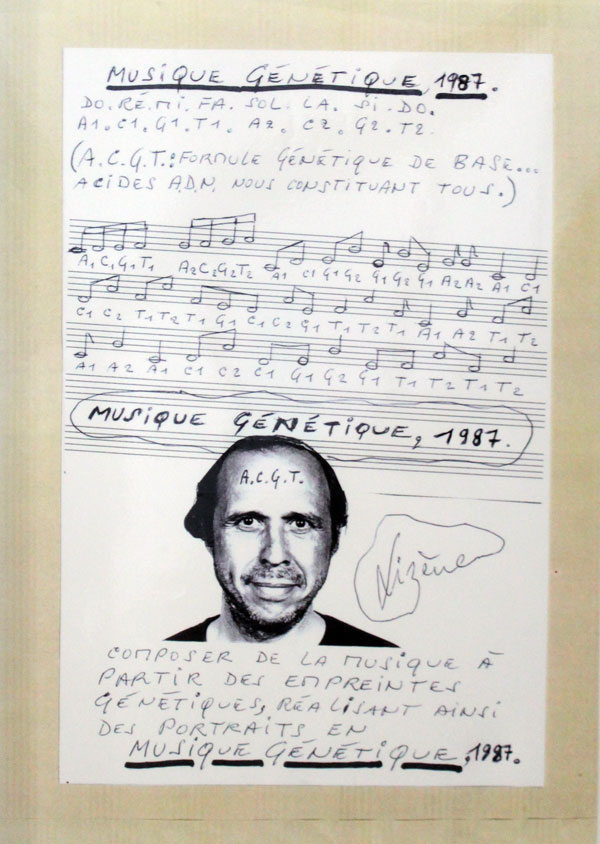 MUSIQUE GÉNÉTIQUE, 1987.
DO. RÉ. MI. FA. SOL. LA. SI. DO.
A1. C1. G1. T1. A2. C2. G2. T2.
(A.C.G.T.: FORMULE GÉNÉTIQUE DE BASE...
ACIDES A.D.N. NOUS CONSTITUANT TOUS.)
A1 C1 G1 T1 A2 C2 G2 T2 A1 C1 G1 G2 G1 G2 G1 A2 A2 A1 C1
C1 C2 T1 T2 T1 G1 C1 C2 G1 T1 T2 T1 A1 A2 T1 T2
A1 A2 A1 C1 C2 C1 G1 G2 G1 T1 T2 T1 T2
MUSIQUE GÉNÉTIQUE, 1987.
A.C.G.T.
Lizène
COMPOSER DE LA MUSIQUE À
PARTIR DES EMPREINTES
GÉNÉTIQUES, RÉALISANT AINSI
DES PORTRAITS EN
MUSIQUE GÉNÉTIQUE, 1987.